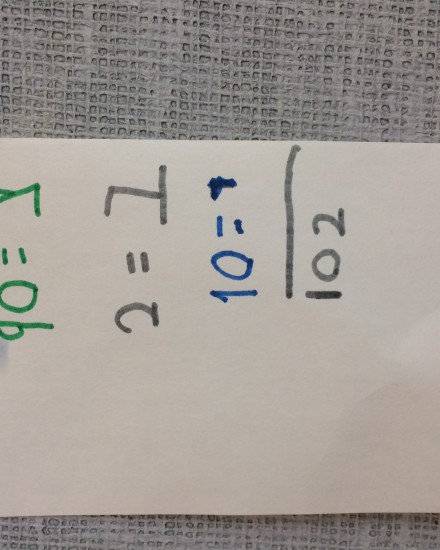 90 = 1
2 = 1
10 = 1
102